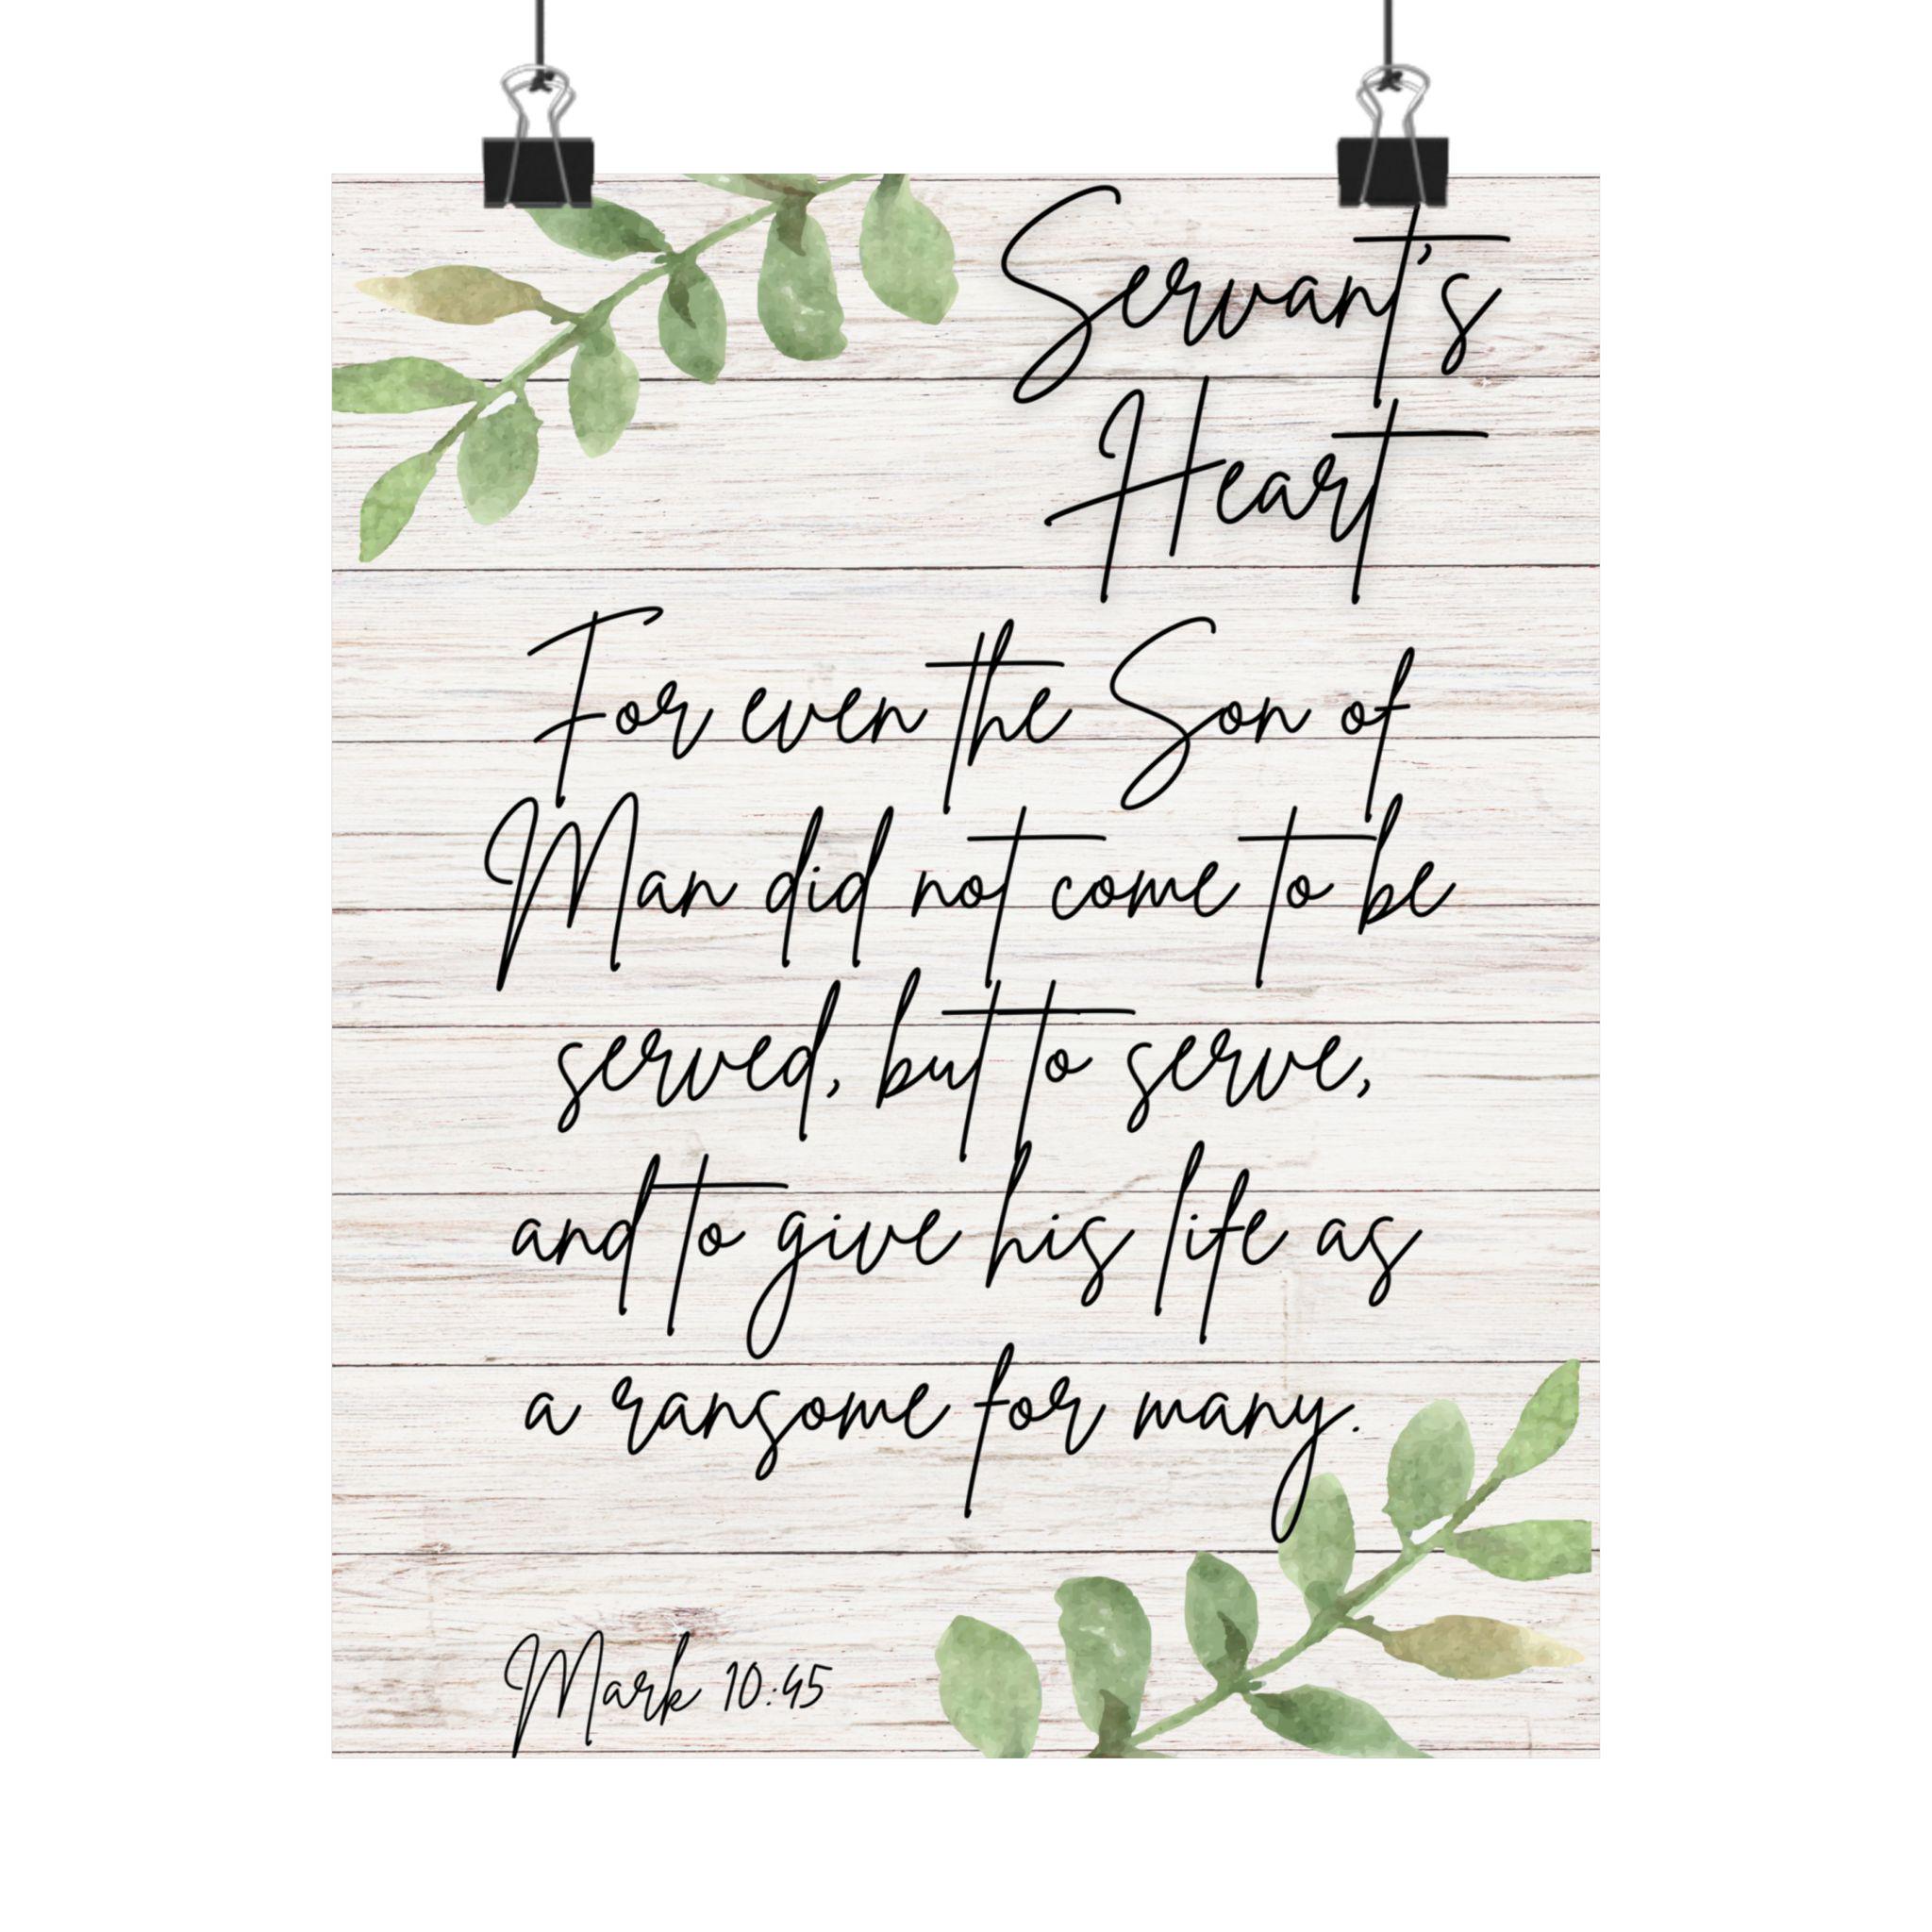 Servant's
Heart
For even the Son of
Man did not come to be
served, but to serve,
and to give his life as
a ransome for many.
Mark 10:45